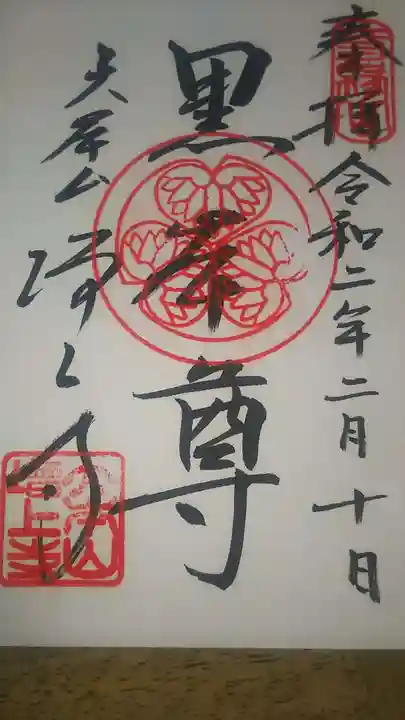 奉拝 令和二年二月十日
黒本尊
大本山 増上寺